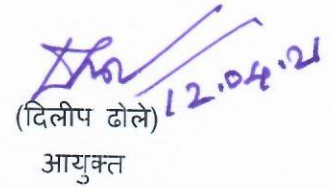 12.04.21
(दिलीप ढोले)
आयुक्त